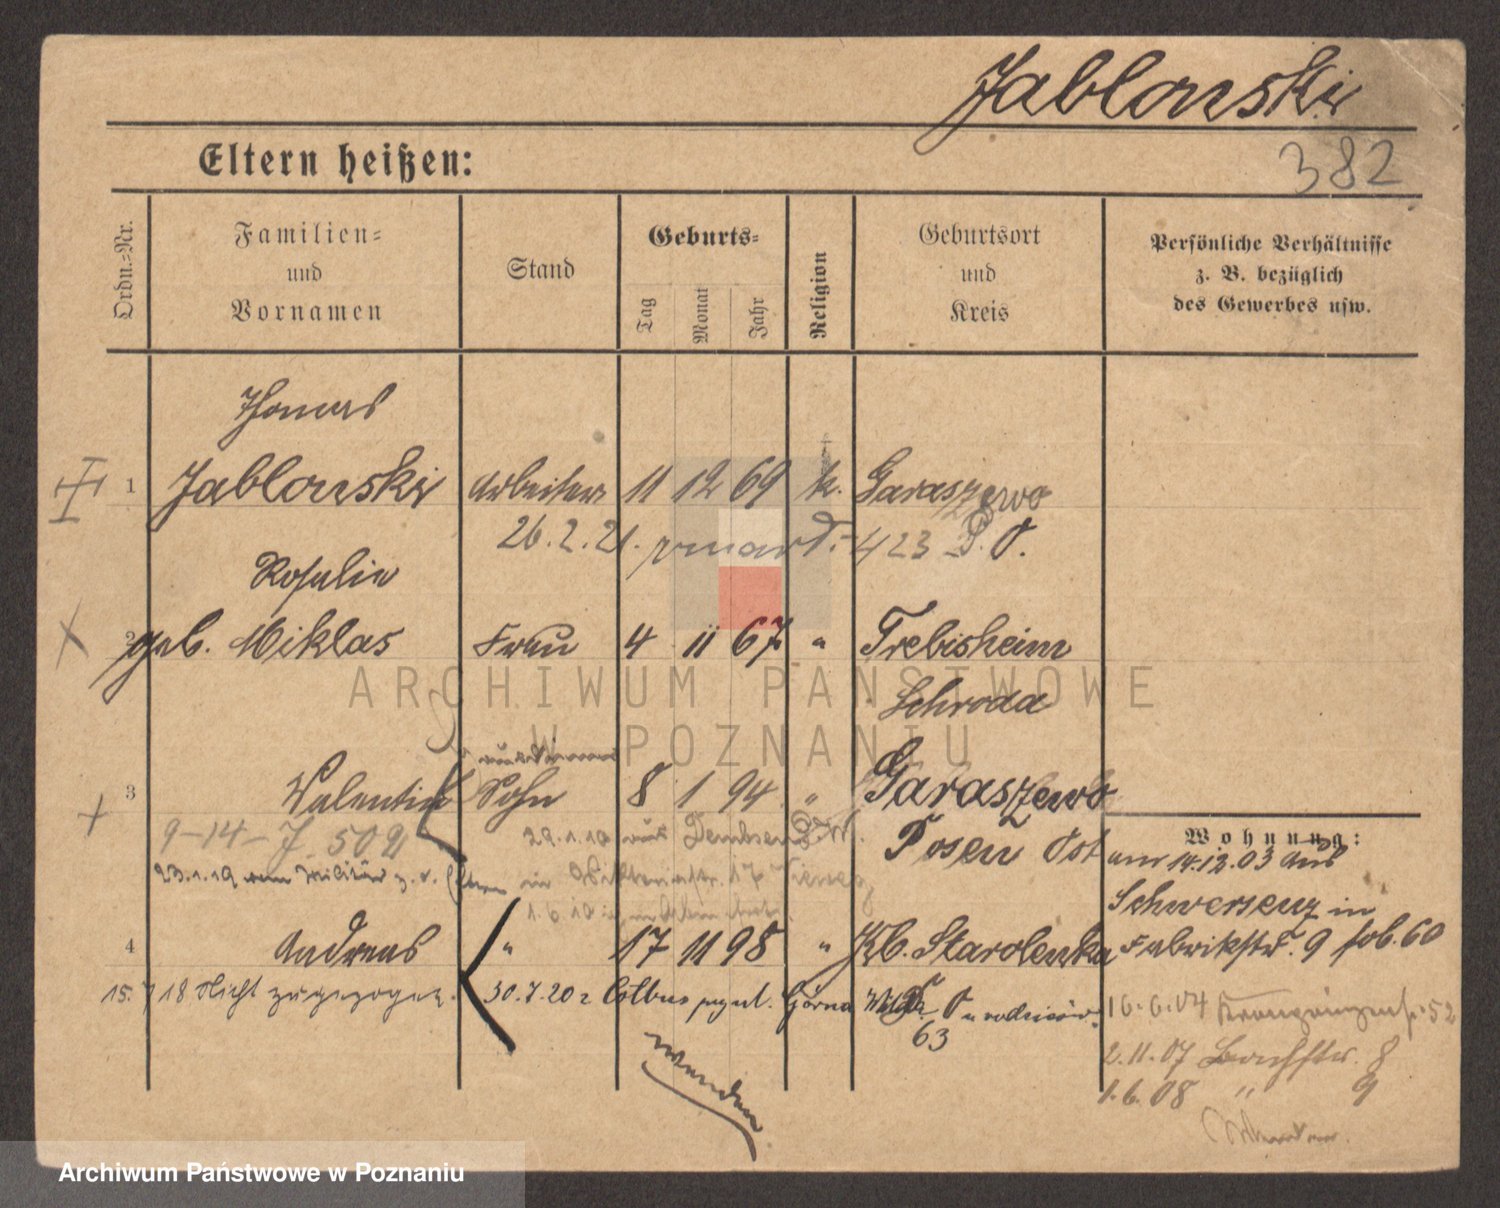 Jablonski
382
Eltern heißen:
Ordn.=Nr.
Familien=
und
Vornamen
Stand
Geburts=
Tag
Monat
Jahr
Religion
Geburtsort
und
Kreis
Persönliche Verhältnisse
z. B. bezüglich
des Gewerbes usw.
Thomas
1 Jablonski Arbeiter 11 12 69 k. Garaszewo
26.2.21. 423
Rosalie
2 geb. Miklas Frau 4 11 67 " Trebisheim
Schroda
3 Valentin Sohn 8 1 94 " Garaszewo
Posen Ost
9-14-J 502
29.1.19 aus Dembsen
23.1.19 vom Militär z. d. Eltern in
1.6.19
Wohnung:
am 14.12.03 aus
Schwersenz in
4 Andreas " 17 11 98 " Kl. Starolenka Fabrikstr. 9
15.7 18 Nicht zugezogen. 30.7.20 Górna Wilda
63
16.6.04 52
2.11.07 Bachstr. 8
1.6.08 " 9
wenden
ARCHIWUM PAŃSTWOWE
W POZNANIU
Archiwum Państwowe w Poznaniu